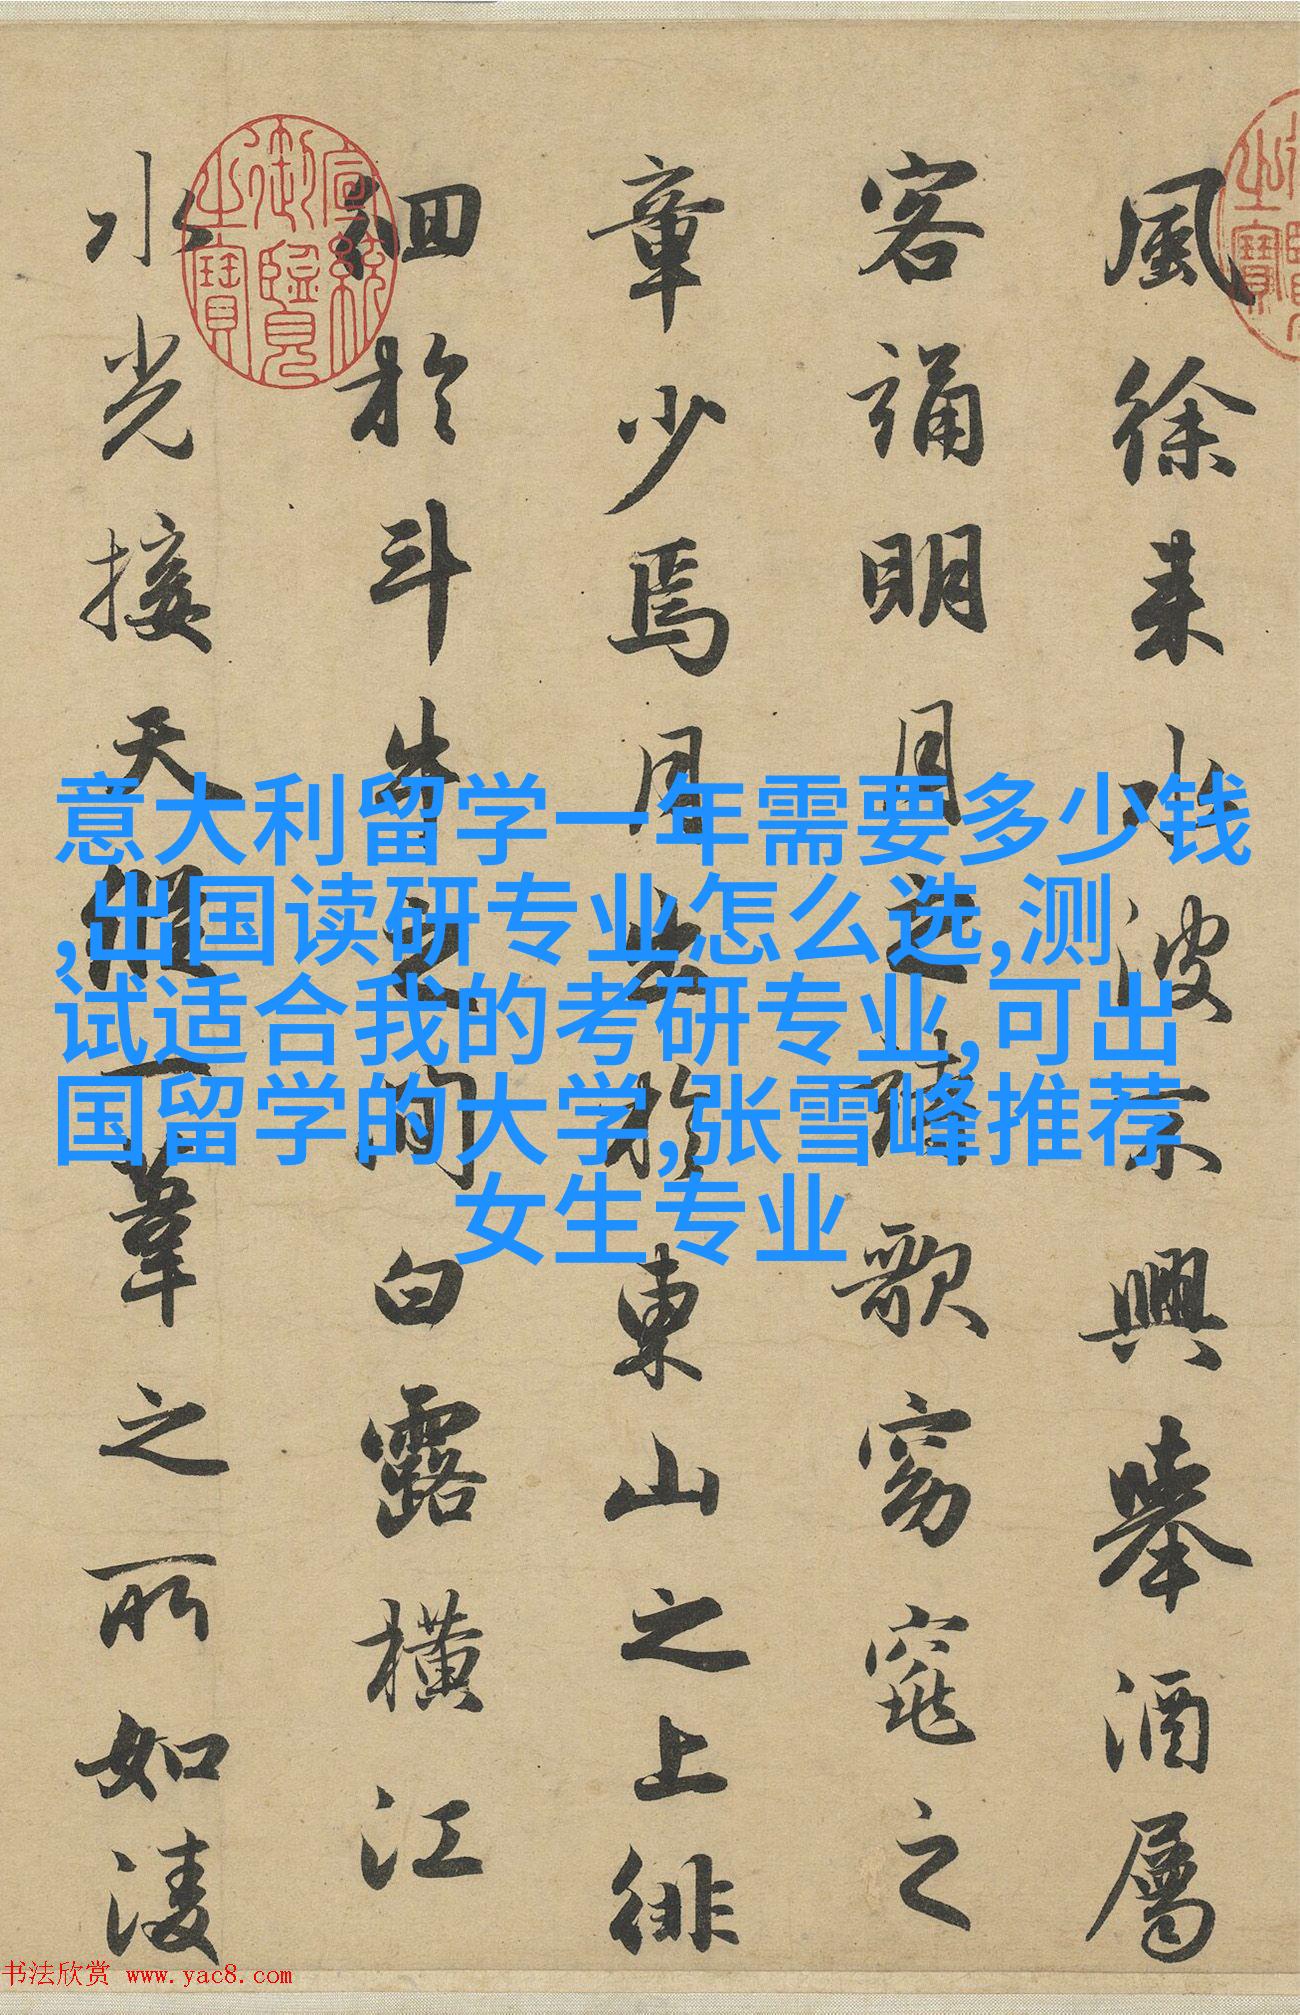 風徐来水波不興舉酒屬
客誦明月之詩歌窈窕之
章少焉月出於東山之上徘
徊於斗牛之間白露橫江
水光接天縱一葦之所如淩
宣統御覽之寶
意大利留学一年需要多少钱
,出国读研专业怎么选,测
试适合我的考研专业,可出
国留学的大学,张雪峰推荐
女生专业
书法欣赏 www.yac8.com